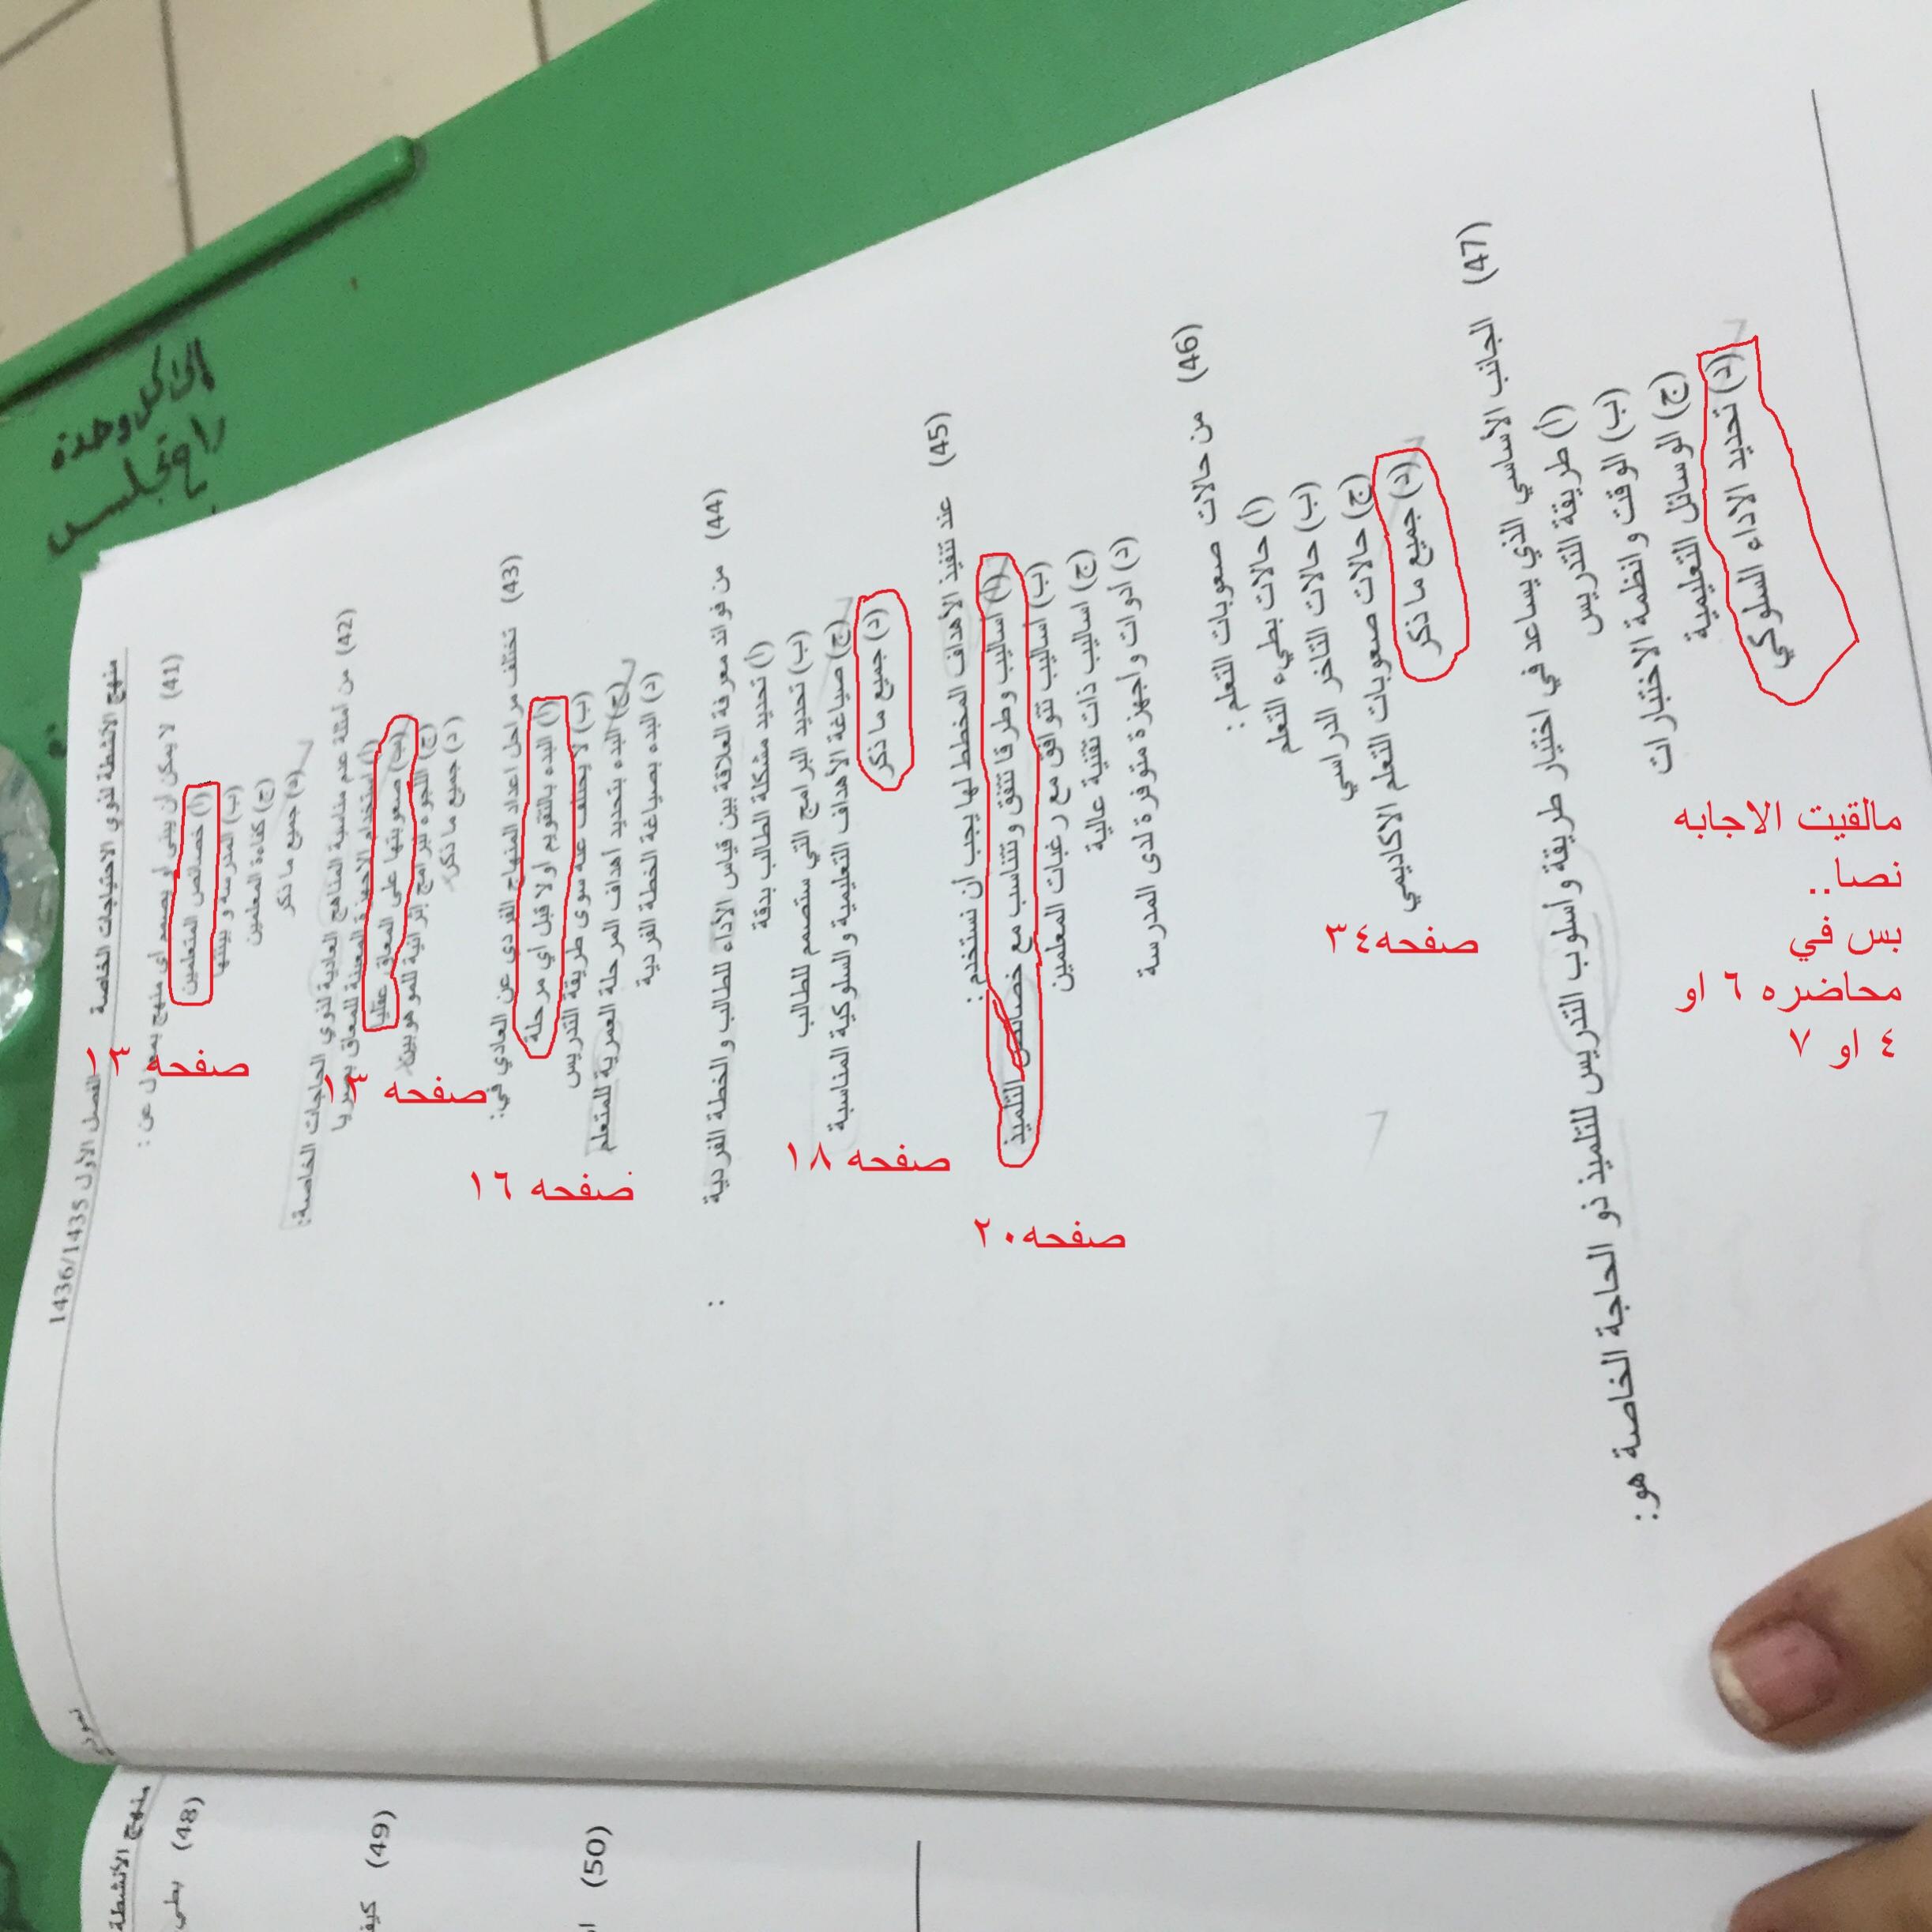 منهج الأنشطة لذوي الاحتياجات الخاصة
الفصل الأول 1436/1435
نموذج
(41) لا يمكن ان يبنى أو يصمم أي منهج بمعزل عن :
(أ) خصائص المتعلمين
(ب) المدرسة و بيئتها
(ج) كفاءة المعلمين
(د) جميع ما ذكر
صفحه ١٣
(42) من أمثلة عدم مناسبة المناهج العادية لذوي الحاجات الخاصة:
(أ) استخدام الاجهزة المعينة للمعاق بصريا
(ب) صعوبتها على المعاق عقليا
(ج) اللجوء لبرامج إثرائية للموهوبين
(د) جميع ما ذكر
صفحه ١٣
(43) تختلف مراحل اعداد المنهاج الفردي عن العادي في:
(أ) البدء بالتقويم أولا قبل اي مرحلة
(ب) لا يختلف عنه سوى طريقة التدريس
(ج) البدء بتحديد أهداف المرحلة العمرية للمتعلم
(د) البدء بصياغة الخطة الفردية
صفحه ١٦
(44) من فوائد معرفة العلاقة بين قياس الأداء للطالب و الخطة الفردية :
(أ) تحديد مشكلة الطالب بدقة
(ب) تحديد البرامج التي ستصمم للطالب
(ج) صياغة الأهداف التعليمية و السلوكية المناسبة
(د) جميع ما ذكر
صفحه ١٨
(45) عند تنفيذ الأهداف المخطط لها يجب أن نستخدم :
(أ) اساليب وطرقا تتفق وتتناسب مع خصائص التلميذ
(ب) اساليب تتوافق مع رغبات المعلمين
(ج) اساليب ذات تقنية عالية
(د) ادوات و أجهزة متوفرة لدى المدرسة
صفحه٢٠
(46) من حالات صعوبات التعلم :
(أ) حالات بطيء التعلم
(ب) حالات التاخر الدراسي
(ج) حالات صعوبات التعلم الاكاديمي
(د) جميع ما ذكر
صفحه٣٤
(47) الجانب الأساسي الذي يساعد في اختيار طريقة وأسلوب التدريس للتلميذ ذو الحاجة الخاصة هو:
(أ) طريقة التدريس
(ب) الوقت و انظمة الاختبارات
(ج) الوسائل التعليمية
(د) تحديد الاداء السلوكي
مالقيت الاجابه
نصا..
بس في
محاضره ٦ او
٤ او ٧
منهج الأنشطة
(48) بطي
(49) كيف
(50)
كل وحدة
تجلس